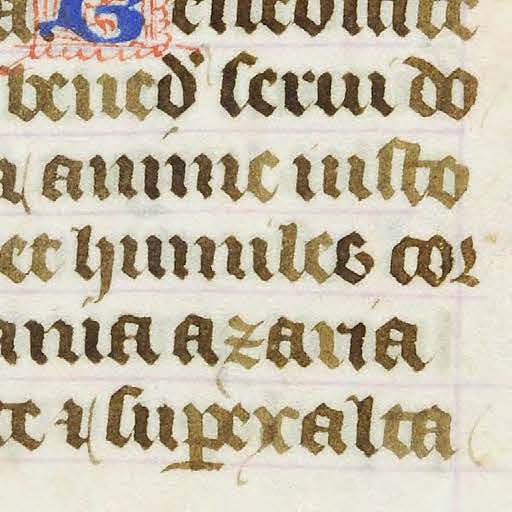 Benedicite
bened' serui do
anime iusto
et humiles cor
ania azaria
te ⁊ superexalta